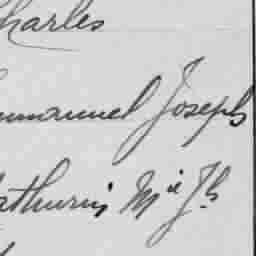 Charles
mmanuel Joseph
athurin Mie Jh